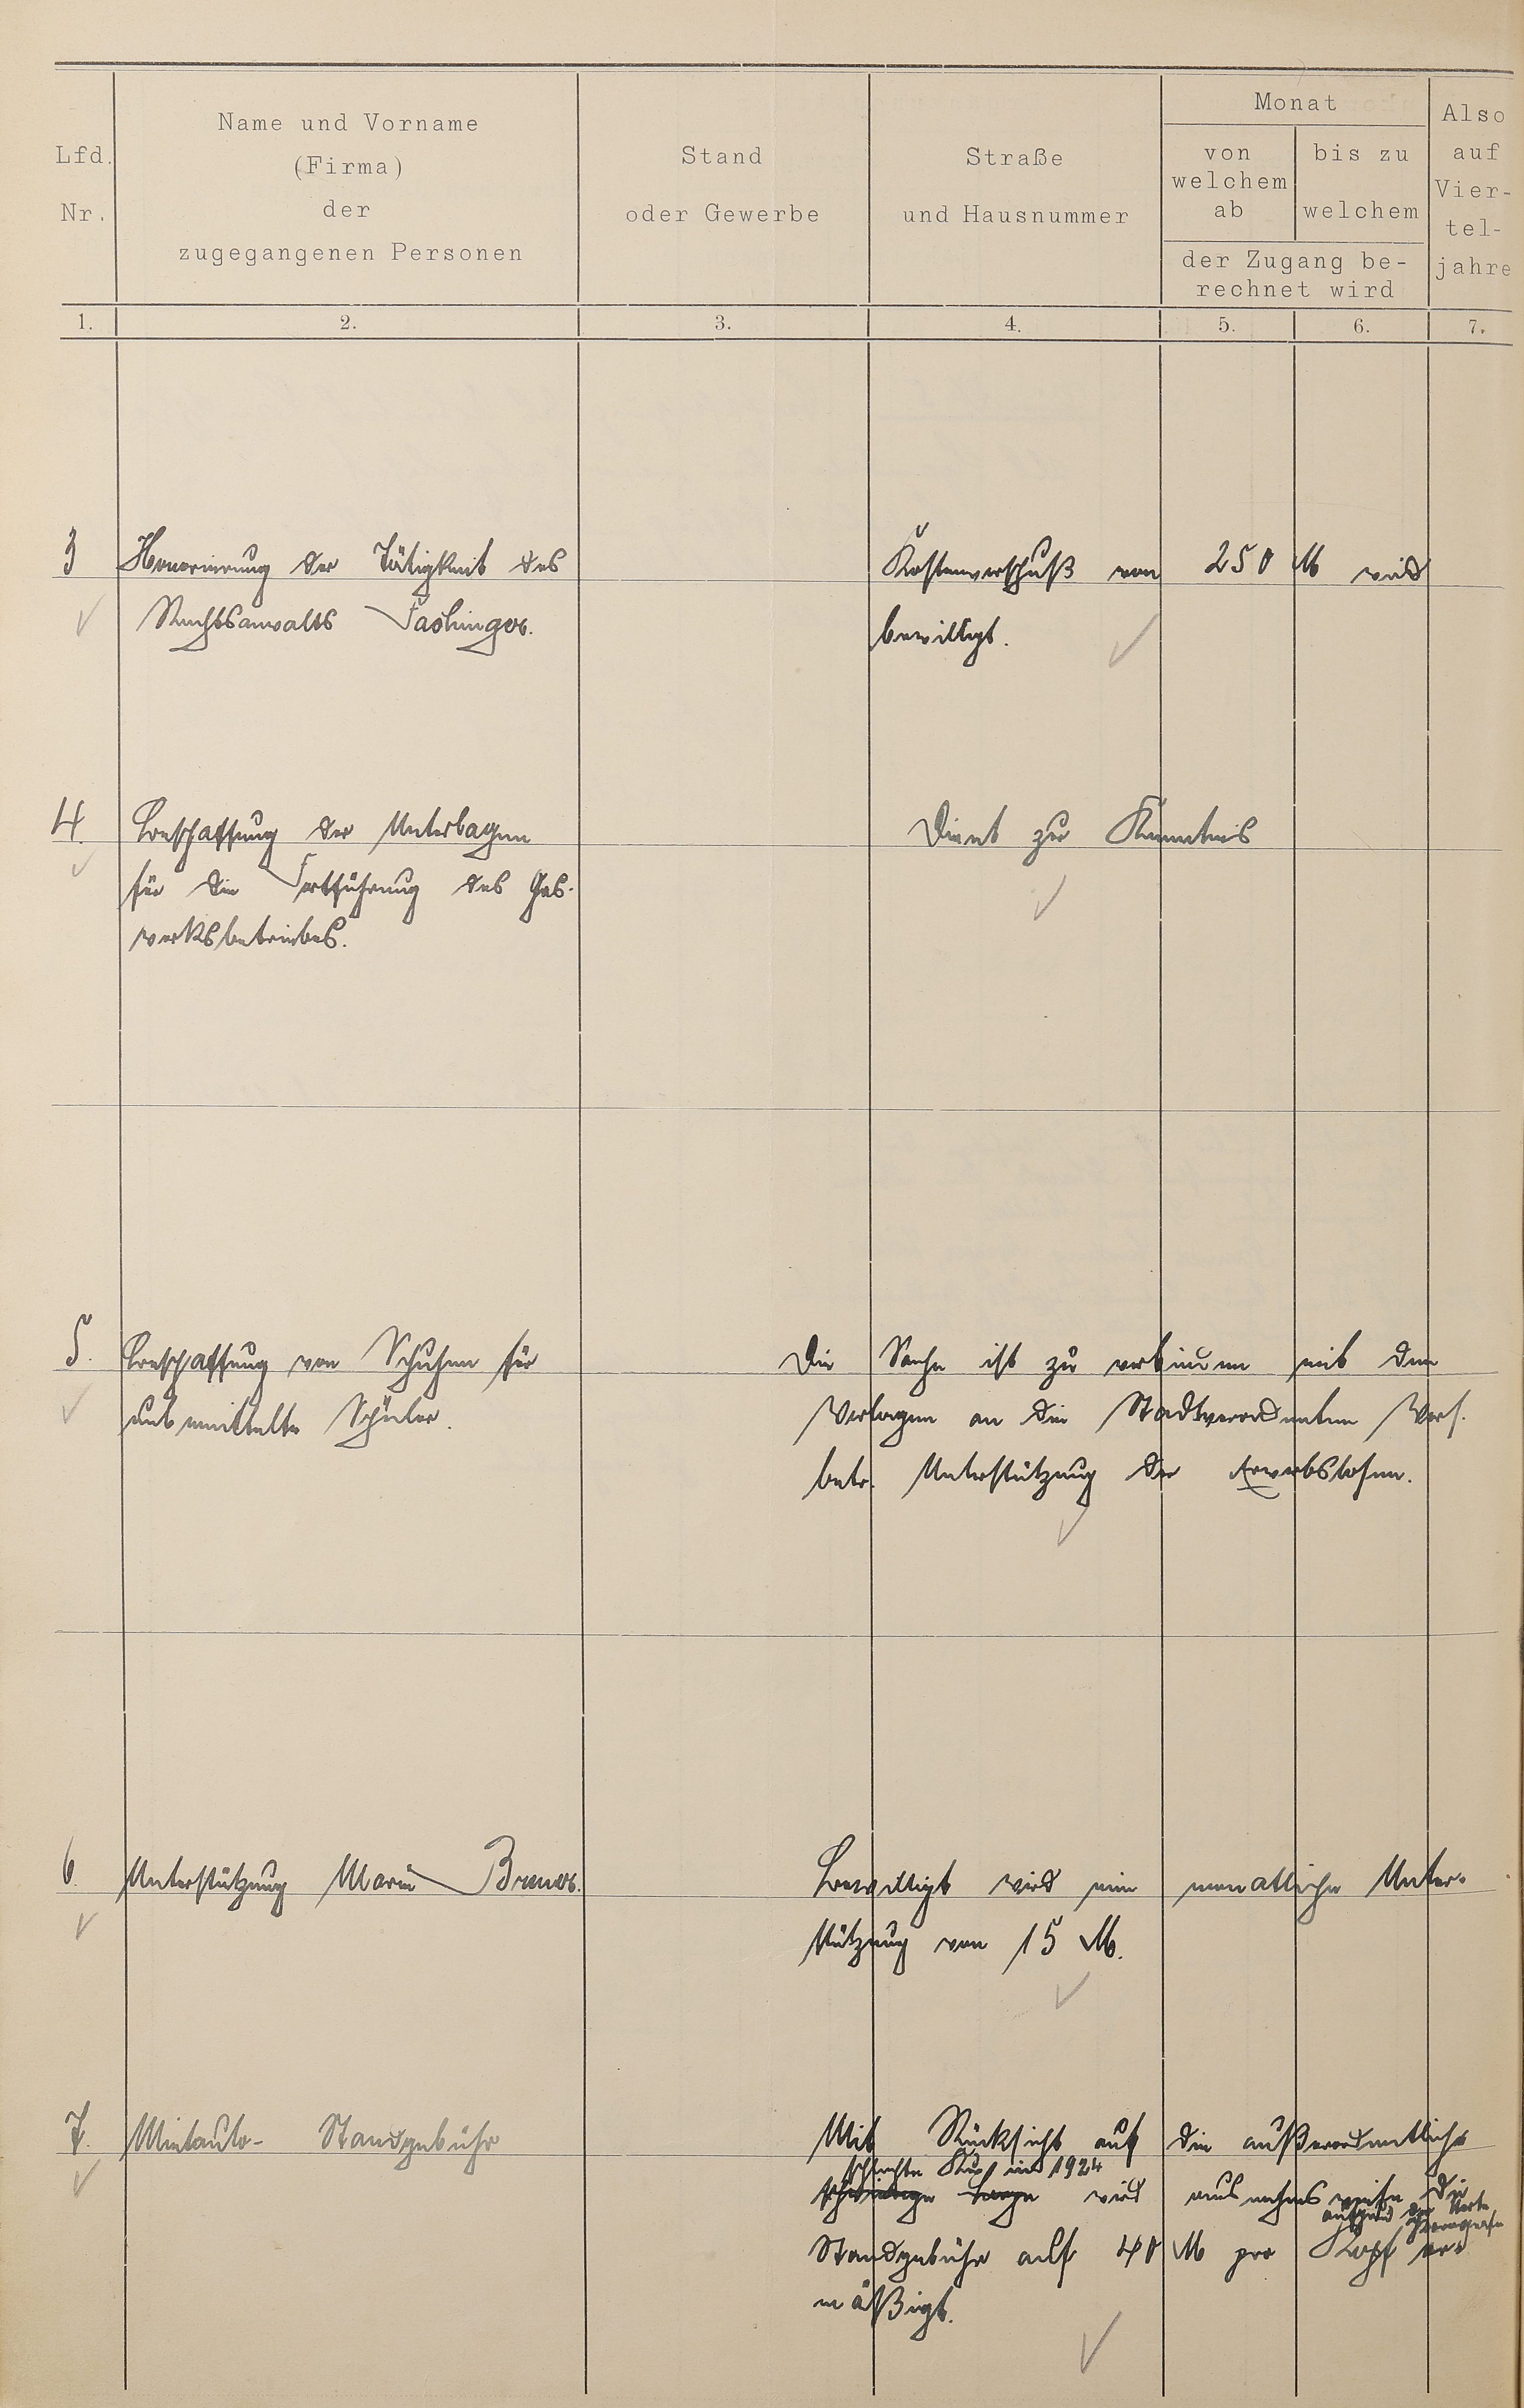 Lfd.
Nr.
Name und Vorname
(Firma)
der
zugegangenen Personen
Stand
oder Gewerbe
Straße
und Hausnummer
Monat
von
welchem
ab
bis zu
welchem
der Zugang be-
rechnet wird
Also
auf
Vier-
tel-
jahre
1. 2. 3. 4. 5. 6. 7.
3 Honorierung der Tätigkeit des
Rechtsanwalts
Kostenvorschuß von 250 M wird
bewilligt.
4. Beschaffung der Unterlagen
für die Fortführung des Gas-
werksbetriebes.
Dient zur Kenntnis
5. Beschaffung von Schuhen für
unbemittelte Schüler.
Die Sache ist zu verbinden mit den
Vorlagen an die Stadtverordneten Vers.
betr. Unterstützung der Erwerbslosen.
6. Unterstützung Marie
Bewilligt wird eine monatliche Unter-
stützung von 15 M.
7. Mietauto- Standgebühr
Mit Rücksicht auf die außerordentlich
schlechte 1924
schwierige Lage wird ausnahmsweise die
Standgebühr auf 40 M pro Kopf er-
mäßigt.